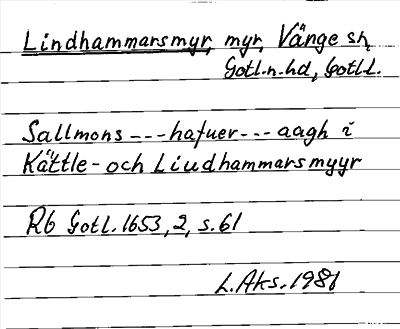 Lindhammarsmyr, myr, Vänge sn,
Gotl.n.hd, Gotl.l.
Sallmons --- hafuer --- aagh i
Kättle- och Liudhammars myyr
Rb Gotl. 1653, 2, s. 61
L. Aks. 1981